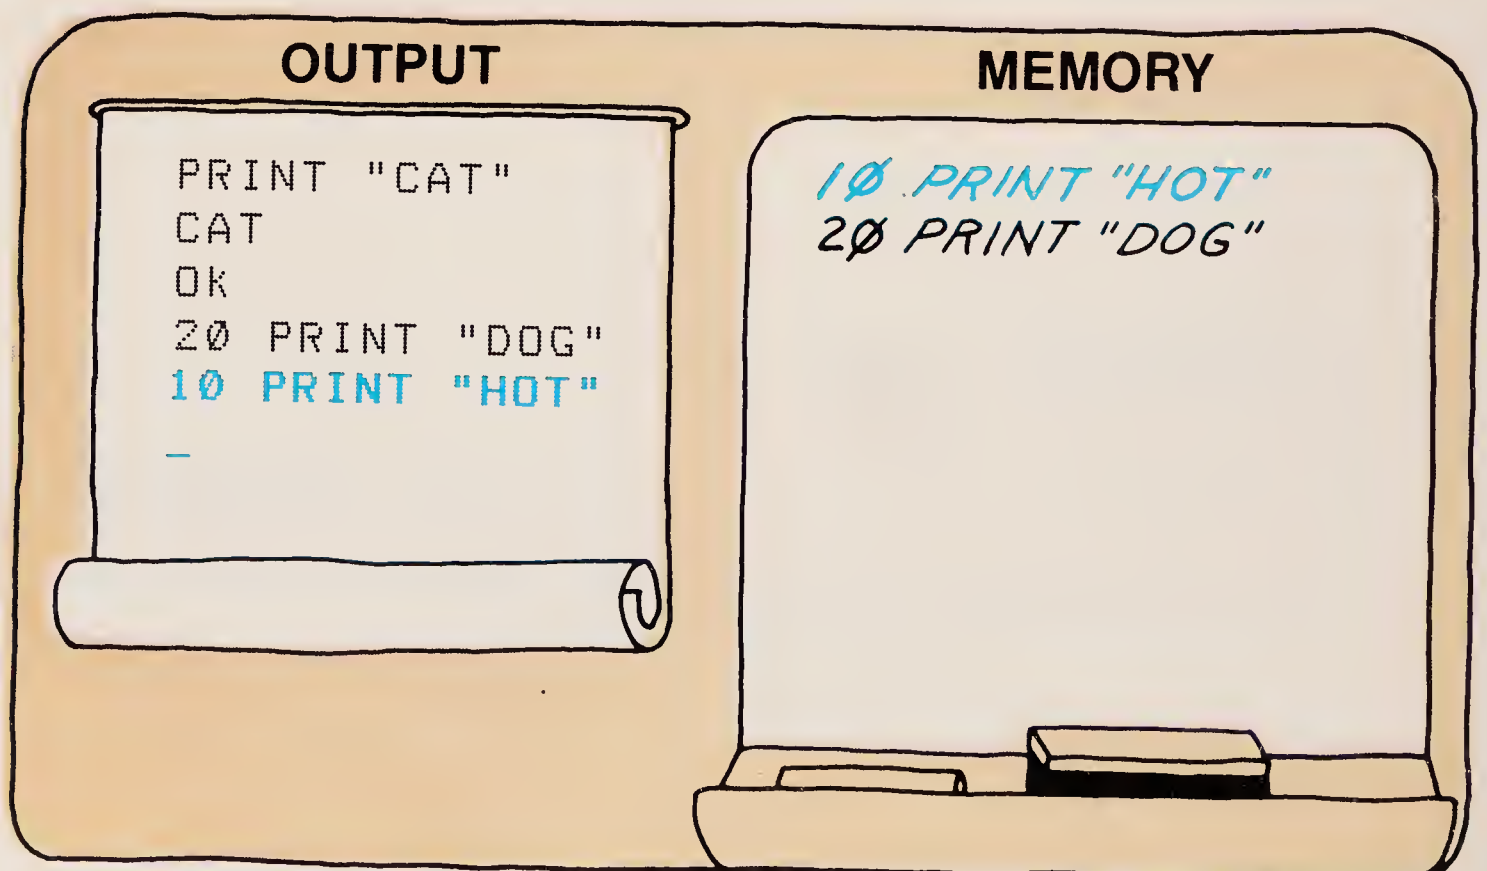 OUTPUT
PRINT "CAT"
CAT
Ok
20 PRINT "DOG"
10 PRINT "HOT"
_
MEMORY
10 PRINT "HOT"
20 PRINT "DOG"